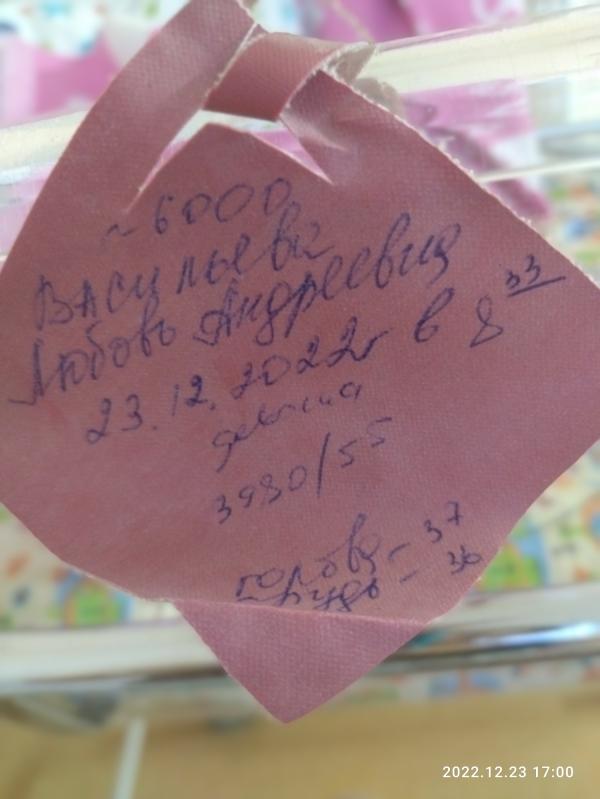 ~6000
Васильева
Любовь Андреевна
23.12.2022г в 8 33
девочка
3980/55
голова - 37
грудь - 36
2022.12.23 17:00